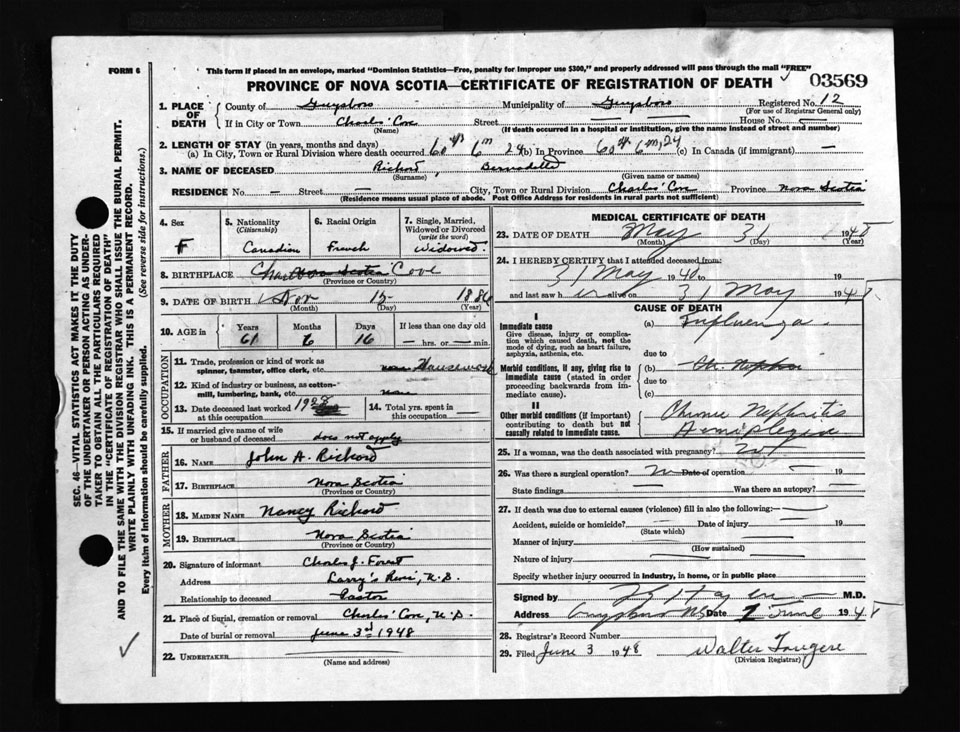 FORM 6
This form if placed in an envelope, marked "Dominion Statistics—Free, penalty for improper use $300," and properly addressed will pass through the mail "FREE"
PROVINCE OF NOVA SCOTIA—CERTIFICATE OF REGISTRATION OF DEATH 03569
1. PLACE OF DEATH County of Guysboro Municipality of Guysboro Registered No. 12
(For use of Registrar General only)
If in City or Town Charles' Cove Street — House No. —
(Name) (If death occurred in a hospital or institution, give the name instead of street and number)
2. LENGTH OF STAY (in years, months and days)
(a) In City, Town or Rural Division where death occurred 60 6m 24 (b) In Province 60 6m, 24 (c) In Canada (if immigrant) —
3. NAME OF DECEASED Richard, Bernadette
(Surname) (Given name or names)
RESIDENCE No. — Street — City, Town or Rural Division Charles' Cove Province Nova Scotia
(Residence means usual place of abode. Post Office Address for residents in rural parts not sufficient)
4. Sex F
5. Nationality (Citizenship) Canadian
6. Racial Origin French
7. Single, Married, Widowed or Divorced (write the word) Widowed
8. BIRTHPLACE Nova Scotia Cove
(Province or Country)
9. DATE OF BIRTH Nov 15 1886
(Month) (Day) (Year)
10. AGE in Years 61 Months 6 Days 16 If less than one day old — hrs. or — min.
OCCUPATION
11. Trade, profession or kind of work as spinner, teamster, office clerk, etc. Housework
12. Kind of industry or business, as cotton-mill, lumbering, bank, etc. none
13. Date deceased last worked at this occupation 1928
14. Total yrs. spent in this occupation —
15. If married give name of wife or husband of deceased does not apply
FATHER
16. NAME John A. Richard
17. BIRTHPLACE Nova Scotia
(Province or Country)
MOTHER
18. MAIDEN NAME Nancy Richard
19. BIRTHPLACE Nova Scotia
(Province or Country)
20. Signature of informant Charles J. Forest
Address Larry's River, N.S.
Relationship to deceased Pastor
21. Place of burial, cremation or removal Charles' Cove, N.S.
Date of burial or removal June 3rd 1948
22. UNDERTAKER
(Name and address)
MEDICAL CERTIFICATE OF DEATH
23. DATE OF DEATH May 31 1948
(Month) (Day) (Year)
24. I HEREBY CERTIFY that I attended deceased from:
31 May 1948 to 19
and last saw her alive on 31 May 1948
CAUSE OF DEATH
I
Immediate cause
Give disease, injury or complication which caused death, not the mode of dying, such as heart failure, asphyxia, asthenia, etc.
(a) Influenza
due to
Morbid conditions, if any, giving rise to immediate cause (stated in order proceeding backwards from immediate cause).
(b)
due to
(c)
II
Other morbid conditions (if important) contributing to death but not causally related to immediate cause.
Chronic Nephritis
Hemiplegia
25. If a woman, was the death associated with pregnancy? No
26. Was there a surgical operation? No Date of operation — 19
State findings Was there an autopsy?
27. If death was due to external causes (violence) fill in also the following:—
Accident, suicide or homicide? Date of injury 19
(State which)
Manner of injury
(How sustained)
Nature of injury
Specify whether injury occurred in industry, in home, or in public place
Signed by M.D.
Address Guysboro NS Date 2 June 1948
28. Registrar's Record Number
29. Filed June 3 1948 Walter Fougere
(Division Registrar)
SEC. 46—VITAL STATISTICS ACT MAKES IT THE DUTY
OF THE UNDERTAKER OR PERSON ACTING AS UNDERTAKER TO OBTAIN ALL THE PARTICULARS REQUIRED
IN THE "CERTIFICATE OF REGISTRATION OF DEATH"
AND TO FILE THE SAME WITH THE DIVISION REGISTRAR WHO SHALL ISSUE THE BURIAL PERMIT.
WRITE PLAINLY WITH UNFADING INK. THIS IS A PERMANENT RECORD.
Every item of information should be carefully supplied. (See reverse side for instructions.)